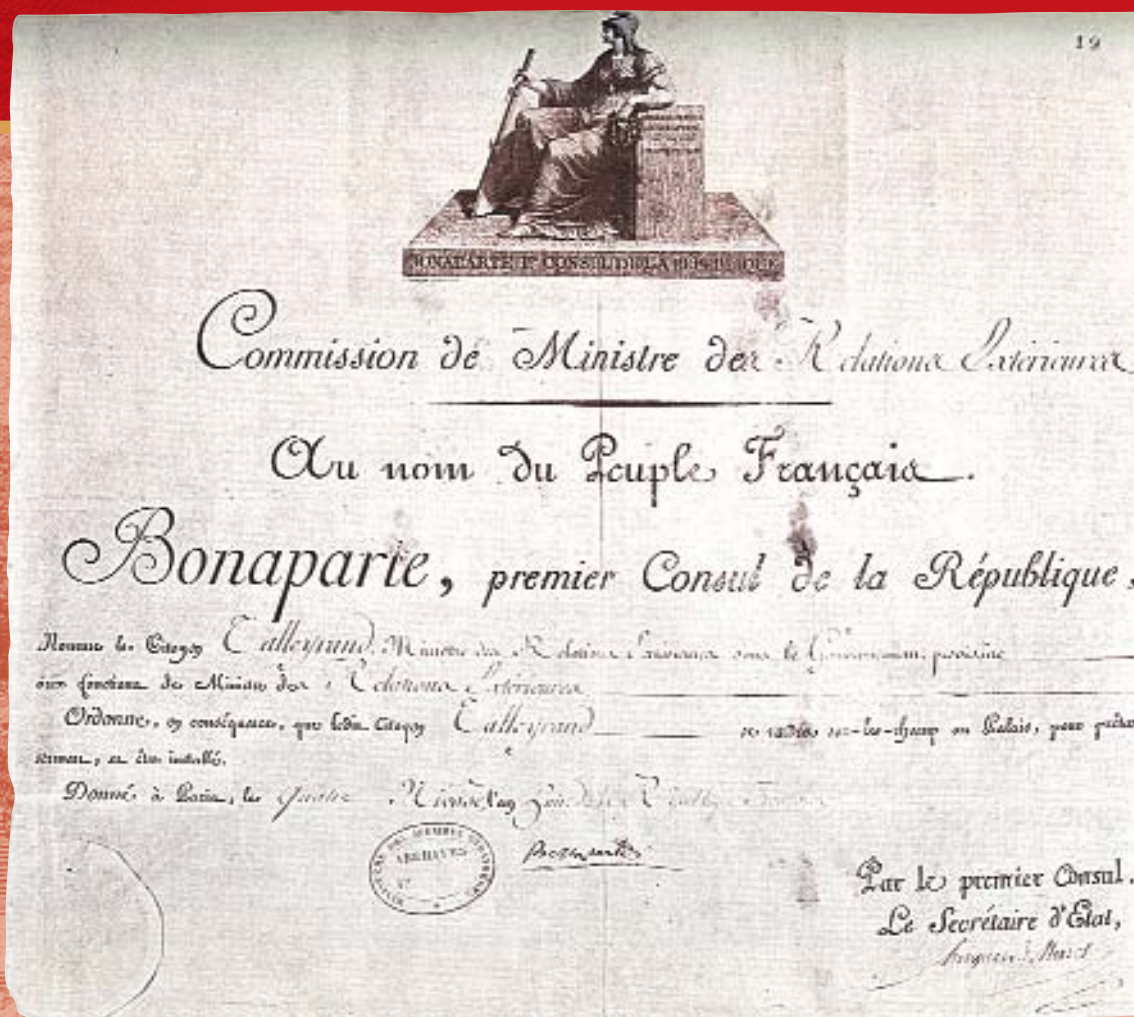 19
BONAPARTE 1er CONSUL DE LA REPUBLIQUE
Commission de Ministre des Relations Extérieures
Au nom du Peuple Français.
Bonaparte, premier Consul de la République,
Nomme le Citoyen Talleyrand, Ministre des Relations Extérieures sous le Gouvernement provisoire
aux fonctions de Ministre des Relations Extérieures
Ordonne, en conséquence, que ledit Citoyen Talleyrand se rendra sur-le-champ au Palais, pour prêter
serment, et être installé.
Donné à Paris, le quatre Nivôse l'an huit de la République
ARCHIVES
Bonaparte
Par le premier Consul.
Le Secrétaire d'Etat,